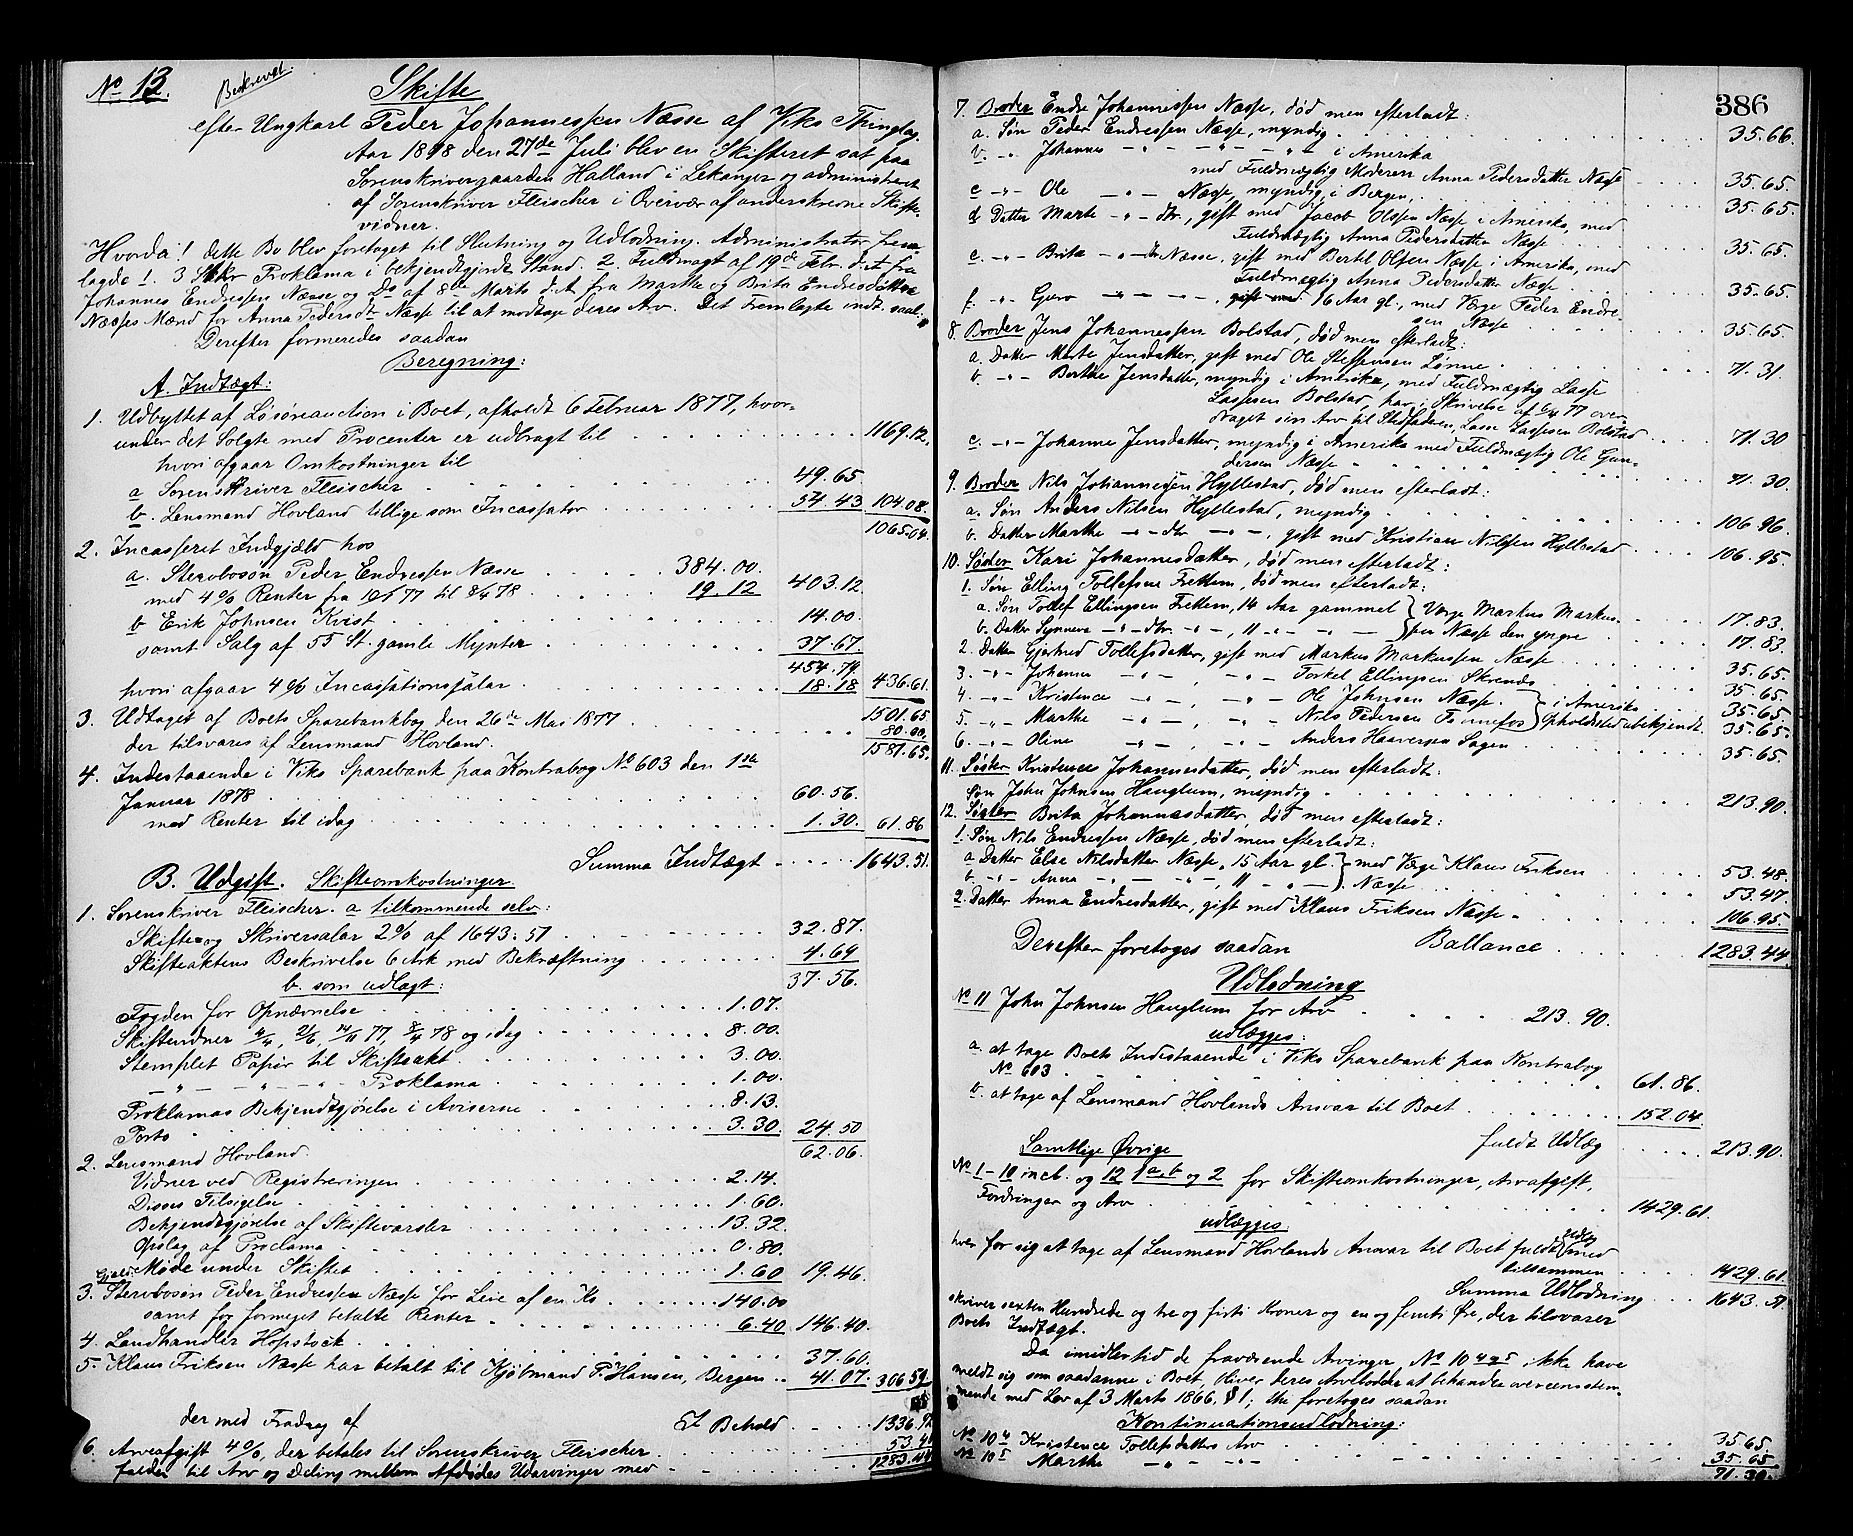 No 13. Beskrevet.
Skifte
efter Ungkarl Peder Johannessen Næsse af Viks Thinglag.
Aar 1878 den 27de Juli blev en Skifteret sat paa
Sorenskrivergaarden Halland i Lekanger og administreret
af Sorenskriver Fleischer i Overvær af underskrevne Skifte-
vidner.
Hvorda! dette Bo blev foretaget til Slutning og Udlodning. Administrator frem
lagde 1. 3 Stkr Proklama i bekjendtgjordt Stand. 2. Fuldmagt af 19de Febr. d.A. fra
Johannes Endressen Næsse og Do af 8de Marts d.A. fra Marthe og Brita Endresdøttre
Næsses Mænd for Anna Pedersdr Næsse til at modtage deres Arv. Det Fremlagte indt. saal.
Derefter formeredes saadan
Beregning:
A. Indtægt:
1. Udbyttet af Løsøreauction i Boet, afholdt 6 Februar 1877, hvor-
under det Solgte med Procenter er udbragt til 1169.12.
hvori afgaar Omkostninger til
a Sorenskriver Fleischer 49.65
b. Lensmand Hovland tillige som Incassator 54.43 104.08.
1065.04.
2. Incasseret Indgjæld hos
a. Stervbosøn Peder Endressen Næsse 384.00.
med 4% Renter fra 77 til 78 19.12 403.12.
b Erik Johnsen Kvist 14.00.
samt Salg af 55 St. gamle Mynter 37.67.
454.79
hvori afgaar 4% Incassationssalar 18.18 436.61.
1501.65.
3. Udtaget af Boets Sparebankbog den 26de Mai 1877 80.00.
der tilsvares af Lensmand Hovland. 1581.65.
4. Indestaaende i Viks Sparebank paa Kontrabog No 603 den 1ste
Januar 1878 60.56.
med Renter til idag 1.30. 61.86
Summa Indtægt 1643.51.
B. Udgift. Skifteomkostninger
1. Sorenskriver Fleischer. a tilkommende selv:
Skifte og Skriversalar 2% af 1643:51 32.87.
Skifteaktens Beskrivelse 6 Ark med Bekræftning 4.69
b. som udlagt: 37.56.
Fogden for Opnævnelse 1.07.
Skiftevidner 77, 78 og idag 8.00.
Stemplet Papir til Skifteakt 3.00.
— " — — " — Proklama 1.00.
Proklamas Bekjendtgjørelse i Aviserne 8.13.
Porto 3.30. 24.50
62.06.
2. Lensmand Hovland.
Vidner ved Registreringen 2.14.
Disses Tilsigelse 1.60.
Bekjendtgjørelse af Skiftevarsler 13.32.
Opslag af Proclama 0.80.
Møde under Skiftet 1.60 19.46.
Gjæld:
3. Stervbosøn Peder Endressen Næsse for Leie af en Ko 140.00
samt for formeget betalte Renter 6.40 146.40.
4. Landhandler Hopstock 37.60.
5. Klaus Eriksen Næsse har betalt til Kjøbmand P. Hansen, Bergen 41.07. 306.59
Er Behold 1336.92
der med Fradrag af
6. Arveafgift 4%, der betales til Sorenskriver Fleischer 53.48
falder til Arv og Deling mellem Afdødes Udarvinger med 1283.44
386
7. Broder Endre Johannessen Næsse, død men efterladt:
a. Søn Peder Endressen Næsse, myndig 35.66.
b. — " — Johannes — " — — " — — " — i Amerika
med Fuldmægtig Moderen Anna Pedersdatter Næsse 35.65.
c — " — Ole — " — Næsse, myndig, i Bergen, 35.65.
d Datter Marte — " — dtr., gift med Jacob Olsen Næsse i Amerika, med
Fuldmægtig Anna Pedersdatter Næsse 35.65.
e. — " — Brita — " — dtr. Næsse, gift med Bertel Olsen Næsse i Amerika, med
Fuldmægtig Anna Pedersdatter Næsse 35.65.
f. — " — Guro — " — — " —, gift med 16 Aar gl., med Værge Peder Endre-
sen Næsse 35.65.
8. Broder Jens Johannessen Bolstad, død men efterladt:
a. Datter Marte Jensdatter, gift med Ole Steffensen Lønne 71.31.
b. — " — Berthe Jensdatter, myndig i Amerika, med Fuldmægtig Lasse
Lassesen Bolstad, har i Skrivelse af 77 over-
draget sin Arv til Stedfaderen, Lasse Lassesen Bolstad 71.30
c. — " — Johanne Jensdatter, myndig i Amerika med Fuldmægtig Ole Gun-
dersen Næsse 71.30.
9. Broder Nils Johannessen Hyllestad, død men efterladt:
a. Søn Anders Nilsen Hyllestad, myndig 106.96.
b. Datter Marthe — " — dtr. — " —, gift med Kristian Nilssen Hyllestad 106.95.
10. Søster Kari Johannesdatter, død men efterladt:
1. Søn Elling Tollefsen Frettem, død men efterladt:
a. Søn Tollef Ellingsen Frettem, 14 Aar gammel } Værge Markus Markus- 17.83.
b. Datter Synneva — " — dtr. — " —, 11 — " — — " — } sen Næsse den yngre 17.83
2. Datter Gjertrud Tollefsdatter, gift med Markus Markussen Næsse 35.65.
3. — " — Johanna — " —, — " — Torkel Ellingsen Skrenes 35.65
4. — " — Kristence — " —, — " — Ole Johnsen Næsse } i Amerika 35.65.
5. — " — Marthe — " —, — " — Nils Pedersen Finnefos } Opholdsted ubekjendt. 35.65.
6. — " — Oline — " —, — " — Anders Haaversen Sagen 35.65.
11. Søster Kristence Johannesdatter, død men efterladt:
Søn John Johnsen Hauglum, myndig 213.90.
12. Søster Brita Johannesdatter, død men efterladt:
1. Søn Nils Endressen Næsse, død men efterladt:
a Datter Else Nilsdatter Næsse, 15 Aar gl. } med Værge Klaus Eriksen 53.48.
b — " — Anna — " — — " —, 11 — " — } Næsse 53.47.
2. Datter Anna Endresdatter, gift med Klaus Eriksen Næsse 106.95
Ballance 1283.44
Derefter foretoges saadan
Udlodning
No 11 John Johnsen Hauglum for Arv 213.90.
udlægges:
a. at tage Boets Indestaaende i Viks Sparebank paa Kontrabog
No 603 61.86.
b. at tage af Lensmand Hovlands Ansvar til Boet 152.04.
fuldt Udlæg 213.90.
Samtlige Øvrige
No 1–10 incl. og 12 1 a, b og 2 for Skifteomkostninger, Arvafgift,
Fordringer og Arv 1429.61.
udlægges
hver for sig at tage af Lensmand Hovlands Ansvar til Boet fuldt Udlæg med
tilsammen 1429.61.
Summa Udlodning 1643.51
skriver sexten Hundrede og tre og firti Kroner og en og femti Øre, der tilsvarer
Boets Indtægt.
Da imidlertid de fraværende Arvinger, No 10 4 og 5 ikke have
meldt sig som saadanne i Boet, bliver deres Arvelodder at behandle overeensstem-
mende med Lov af 3 Marts 1866, § 1; thi foretoges saadan
Kontinuationsudlodning:
No 10 4 Kristence Tollefsdatters Arv 35.65.
No 10 5 Marthe — " — — " — 35.65
71.30.